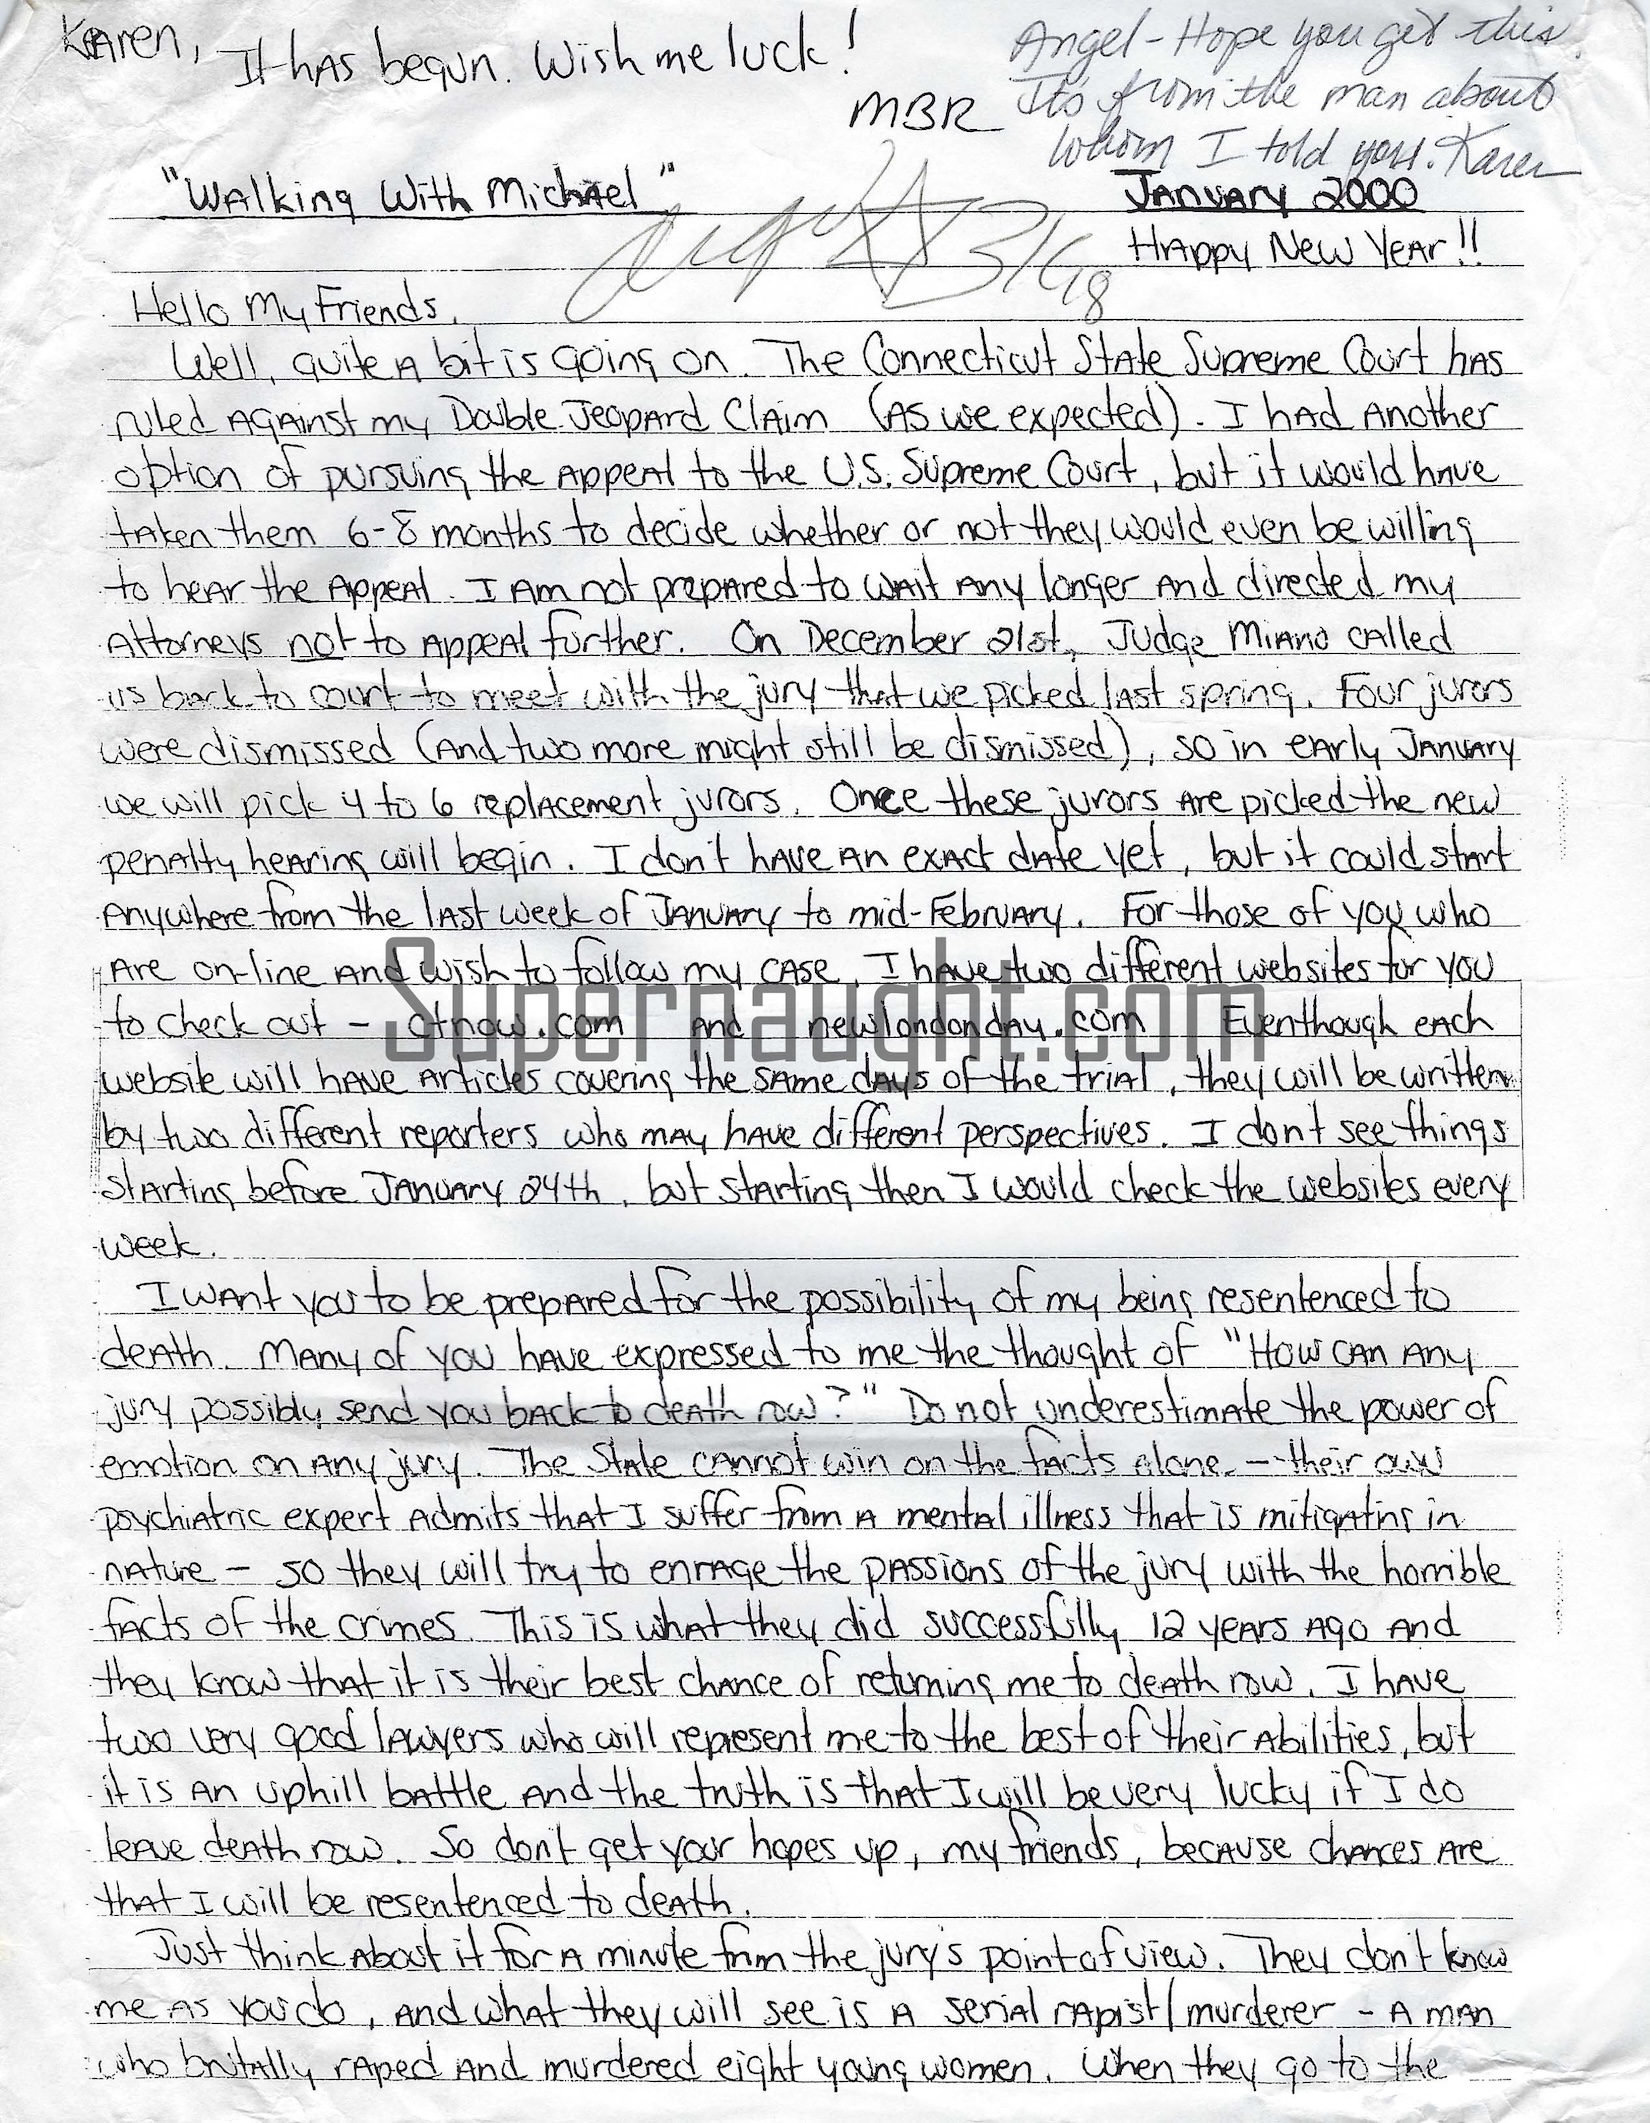 Karen, It has begun. Wish me luck!
MBR
Angel - Hope you get this.
It's from the man about
whom I told you. Karen
"Walking With Michael"
January 2000
Happy New Year!!
Hello My Friends,
Well, quite a bit is going on. The Connecticut State Supreme Court has
ruled against my Double Jeopard Claim (as we expected). I had another
option of pursuing the appeal to the U.S. Supreme Court, but it would have
taken them 6-8 months to decide whether or not they would even be willing
to hear the appeal. I am not prepared to wait any longer and directed my
attorneys not to appeal further. On December 21st, Judge Miano called
us back to court to meet with the jury that we picked last spring. Four jurors
were dismissed (and two more might still be dismissed), so in early January
we will pick 4 to 6 replacement jurors. Once these jurors are picked the new
penalty hearing will begin. I don't have an exact date yet, but it could start
anywhere from the last week of January to mid-February. For those of you who
are on-line and wish to follow my case, I have two different websites for you
to check out - ctnow.com and newlondonday.com Eventhough each
website will have articles covering the same days of the trial, they will be written
by two different reporters who may have different perspectives. I don't see things
starting before January 24th, but starting then I would check the websites every
week.
Supernaught.com
I want you to be prepared for the possibility of my being resentenced to
death. Many of you have expressed to me the thought of "How can any
jury possibly send you back to death row?" Do not underestimate the power of
emotion on any jury. The State cannot win on the facts alone - their own
psychiatric expert admits that I suffer from a mental illness that is mitigating in
nature - so they will try to enrage the passions of the jury with the horrible
facts of the crimes. This is what they did successfully 12 years ago and
they know that it is their best chance of returning me to death row. I have
two very good lawyers who will represent me to the best of their abilities, but
it is an uphill battle and the truth is that I will be very lucky if I do
leave death row. So don't get your hopes up, my friends, because chances are
that I will be resentenced to death.
Just think about it for a minute from the jury's point of view. They don't know
me as you do, and what they will see is a serial rapist/murderer - a man
who brutally raped and murdered eight young women. When they go to the